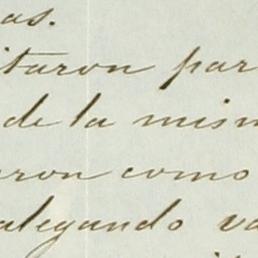 as.
itaron par
de la mism
aron como
alegando va